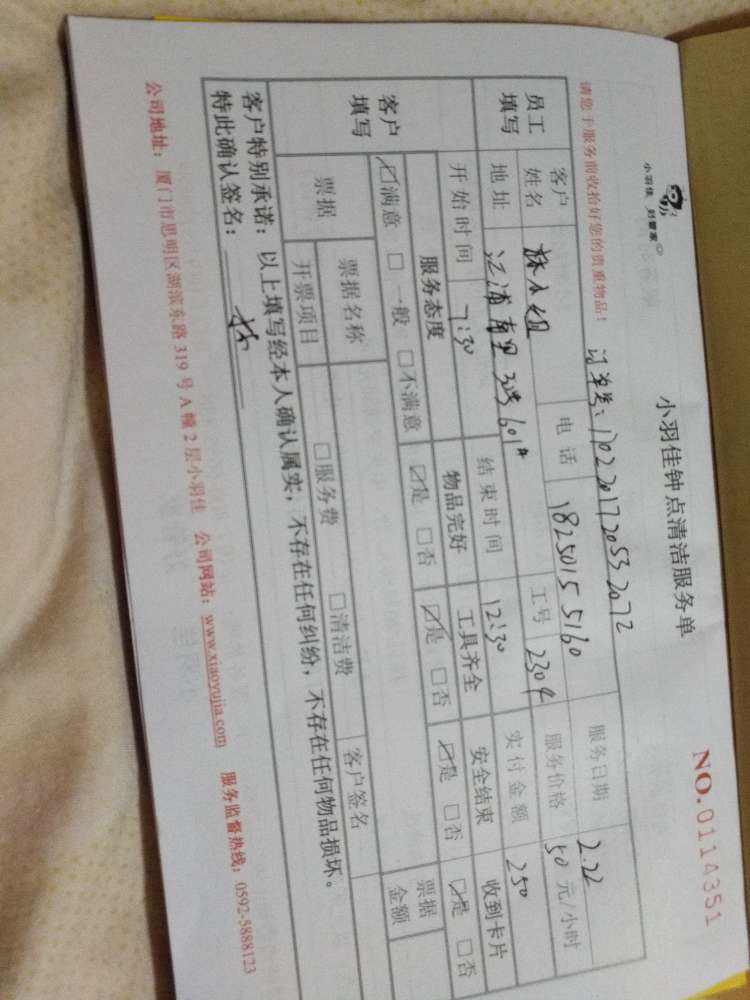 小羽佳 好管家
小羽佳钟点清洁服务单
NO.0114351
请您于服务前收拾好您的贵重物品！
订单号：170220172053 2072
员工填写
客户姓名 林小姐 电话 18250155160 服务日期 2.22
地址 江浦南里 601# 工号 2304 服务价格 50 元/小时
开始时间 7:30 结束时间 12:30 实付金额 250
客户填写
服务态度 物品完好 工具齐全 安全结束 收到卡片
☑满意 □一般 □不满意 ☑是 □否 ☑是 □否 ☑是 □否 ☑是 □否
票据 票据名称 客户签名 票据金额
开票项目 □服务费 □清洁费
客户特别承诺：以上填写经本人确认属实，不存在任何纠纷，不存在任何物品损坏。
特此确认签名：
公司地址：厦门市思明区湖滨东路 319 号 A 幢 2 层小羽佳 公司网站：www.xiaoyujia.com 服务监督热线：0592-5888123